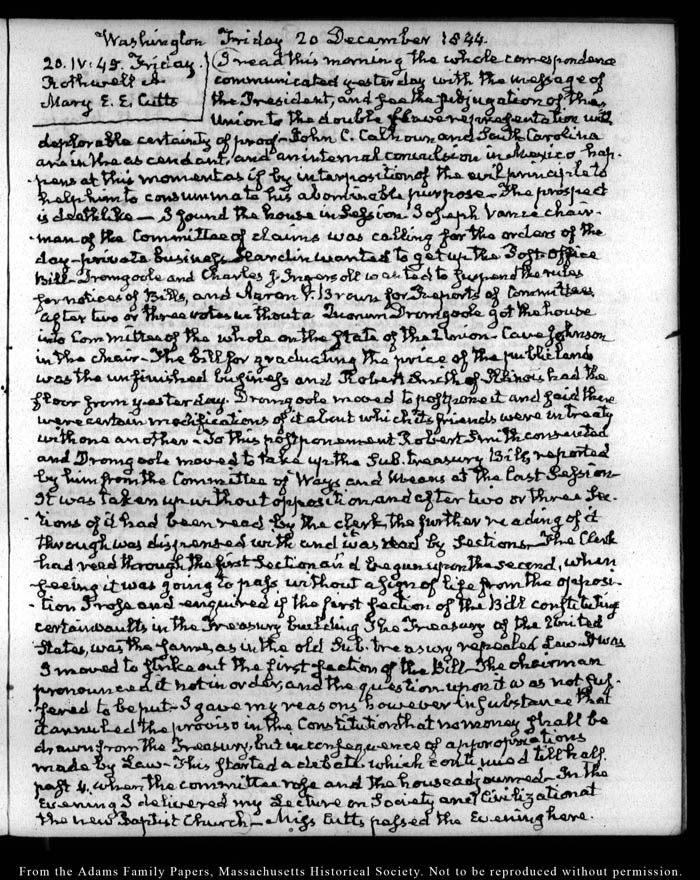 Washington Friday 20 December 1844.
20. IV: 45. Friday
Rothwell A
Mary E. E. Cutts
I read this morning the whole correspondence
communicated yesterday with the message of
the President, and see the subjugation of the
Union to the double slave representation with
deplorable certainty of proof - John C. Calhoun and South Carolina
are in the ascendant, and an internal convulsion in Mexico hap-
-pens at this moment as if by interposition of the evil principle to
help him to consummate his abominable purpose - The prospect
is deathlike - I found the house in Session Joseph Vance chair-
-man of the Committee of claims was calling for the orders of the
day - private business. Hardin wanted to get up the Post-Office
Bill - Dromgoole and Charles J. Ingersoll wanted to suspend the rules
for notices of Bills, and Aaron V. Brown for Reports of Committees
after two or three votes without a Quorum Dromgoole got the house
into Committee of the whole on the State of the Union - Cave Johnson
in the chair - The Bill for graduating the price of the public lands
was the unfinished business and Robert Smith of Illinois had the
floor from yesterday. Dromgoole moved to postpone it and said there
were certain modifications of it about which its friends were in treaty
with one another - To this postponement Robert Smith consented
and Dromgoole moved to take up the Sub-treasury Bill, reported
by him from the Committee of Ways and Means at the last Session
It was taken up without opposition, and after two or three Sec-
-tions of it had been read by the clerk, the further reading of it
through was dispensed with and it was read by Sections - The Clerk
had read through the first Section and begun upon the second, when
seeing it was going to pass without a sign of life from the opposi-
-tion I rose and enquired if the first section of the Bill constituting
certain vaults in the Treasury building The Treasury of the United
States, was the same, as in the old Sub-treasury repealed Law - It was
I moved to strike out the first section of the Bill - The chairman
pronounced it not in order, and the question upon it was not suf-
-fered to be put - I gave my reasons however in substance that
it annulled the proviso in the Constitution that no money shall be
drawn from the Treasury, but in consequence of appropriations
made by Law - This started a debate which continued till half
past 4. when the committee rose and the house adjourned - In the
Evening I delivered my Lecture on Society and Civilization at
the new Baptist Church - Miss Cutts passed the Evening here.
From the Adams Family Papers, Massachusetts Historical Society. Not to be reproduced without permission.